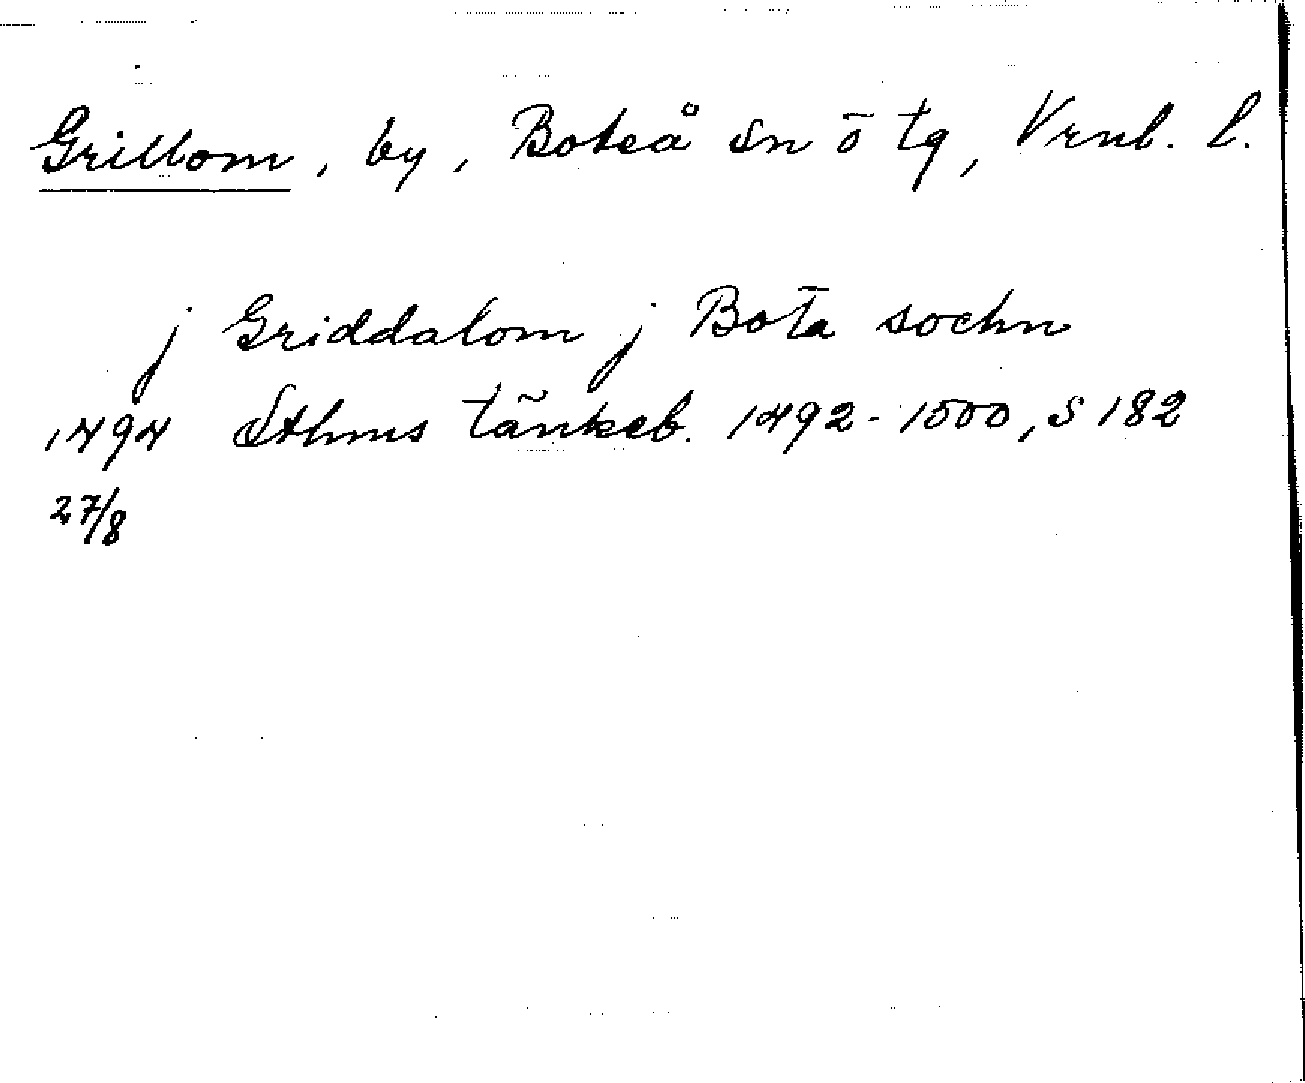 Grillom, by, Boteå sn o tg, Vrnl. l.
j Griddalom j Bota sochn
1494 Sthms tänkeb. 1492-1500, s 182
27/8